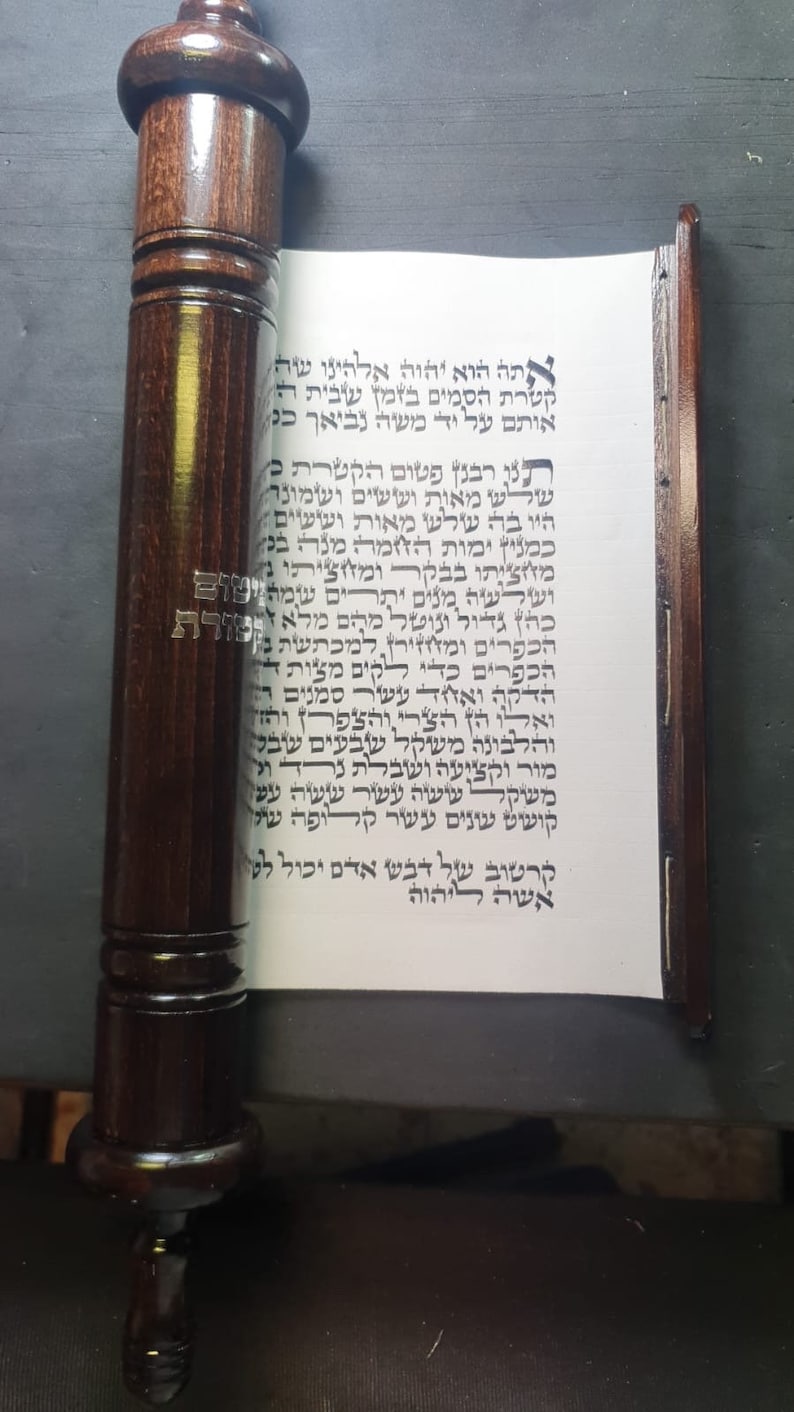 פיטום
קטורת
אתה הוא יהוה אלהינו
קטרת הסמים בזמן שבית
אותם על יד משה נביאך
תנו רבנן פטום הקטרת
שלש מאות וששים ושמונה
היו בה שלש מאות וששים
כמנין ימות החמה מנה
מחציתו בבקר ומחציתו
ושלשה מנים יתרים
כהן גדול ונוטל מהם מלא
הכפרים ומחזירן למכתשת
הכפרים כדי לקים מצות
הדקה ואחד עשר סמנים
ואלו הן הצרי והצפרן
והלבונה משקל שבעים
מור וקציעה ושבלת נרד
משקל ששה עשר ששה
קושט שנים עשר קלופה
קרטוב של דבש אדם יכול
אשה ליהוה